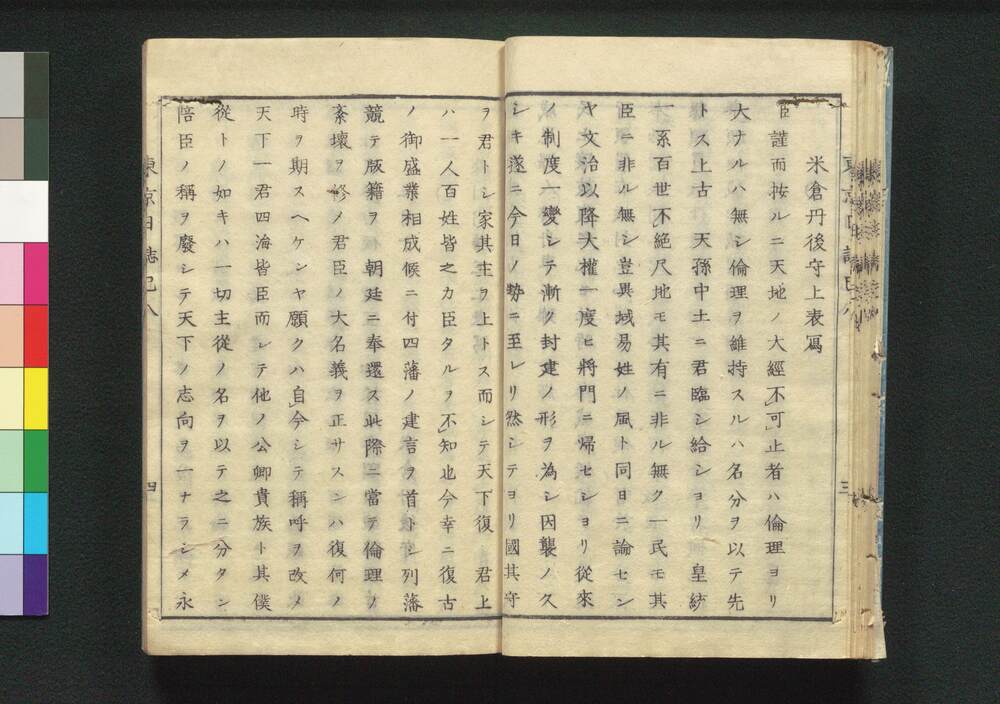 米倉丹後守上表寫
臣謹而按ルニ天地ノ大經不可止者ハ倫理ヨリ
大ナルハ無シ倫理ヲ維持スルハ名分ヲ以テ先
トス上古　天孫中土ニ君臨シ給シヨリ　皇統
一系百世不絕尺地モ其有ニ非ル無ク一民モ其
臣ニ非ル無シ豈異域易姓ノ風ト同日ニ論セン
ヤ文治以降大權一度ヒ將門ニ帰セシヨリ從來
ノ制度一變シテ漸ク封建ノ形ヲ為シ因襲ノ久
シキ遂ニ今日ノ勢ニ至レリ然シテヨリ國其守
ヲ君トシ家其主ヲ上トス而シテ天下復　君上
ハ一人百姓皆之カ臣タルヲ不知也今幸ニ復古
ノ御盛業相成候ニ付四藩ノ建言ヲ首トシ列藩
競テ版籍ヲ　朝廷ニ奉還ス此際ニ當テ倫理ノ
紊壞ヲ修メ君臣ノ大名義ヲ正サスンハ復何ノ
時ヲ期スヘケンヤ願クハ自今シテ稱呼ヲ改メ
天下一君四海皆臣而シテ他ノ公卿貴族ト其僕
從トノ如キハ一切主從ノ名ヲ以テ之ニ分タン
陪臣ノ稱ヲ廢シテ天下ノ志向ヲ一ナラシメ永
東京日誌巳八
三
東京日誌巳八
四